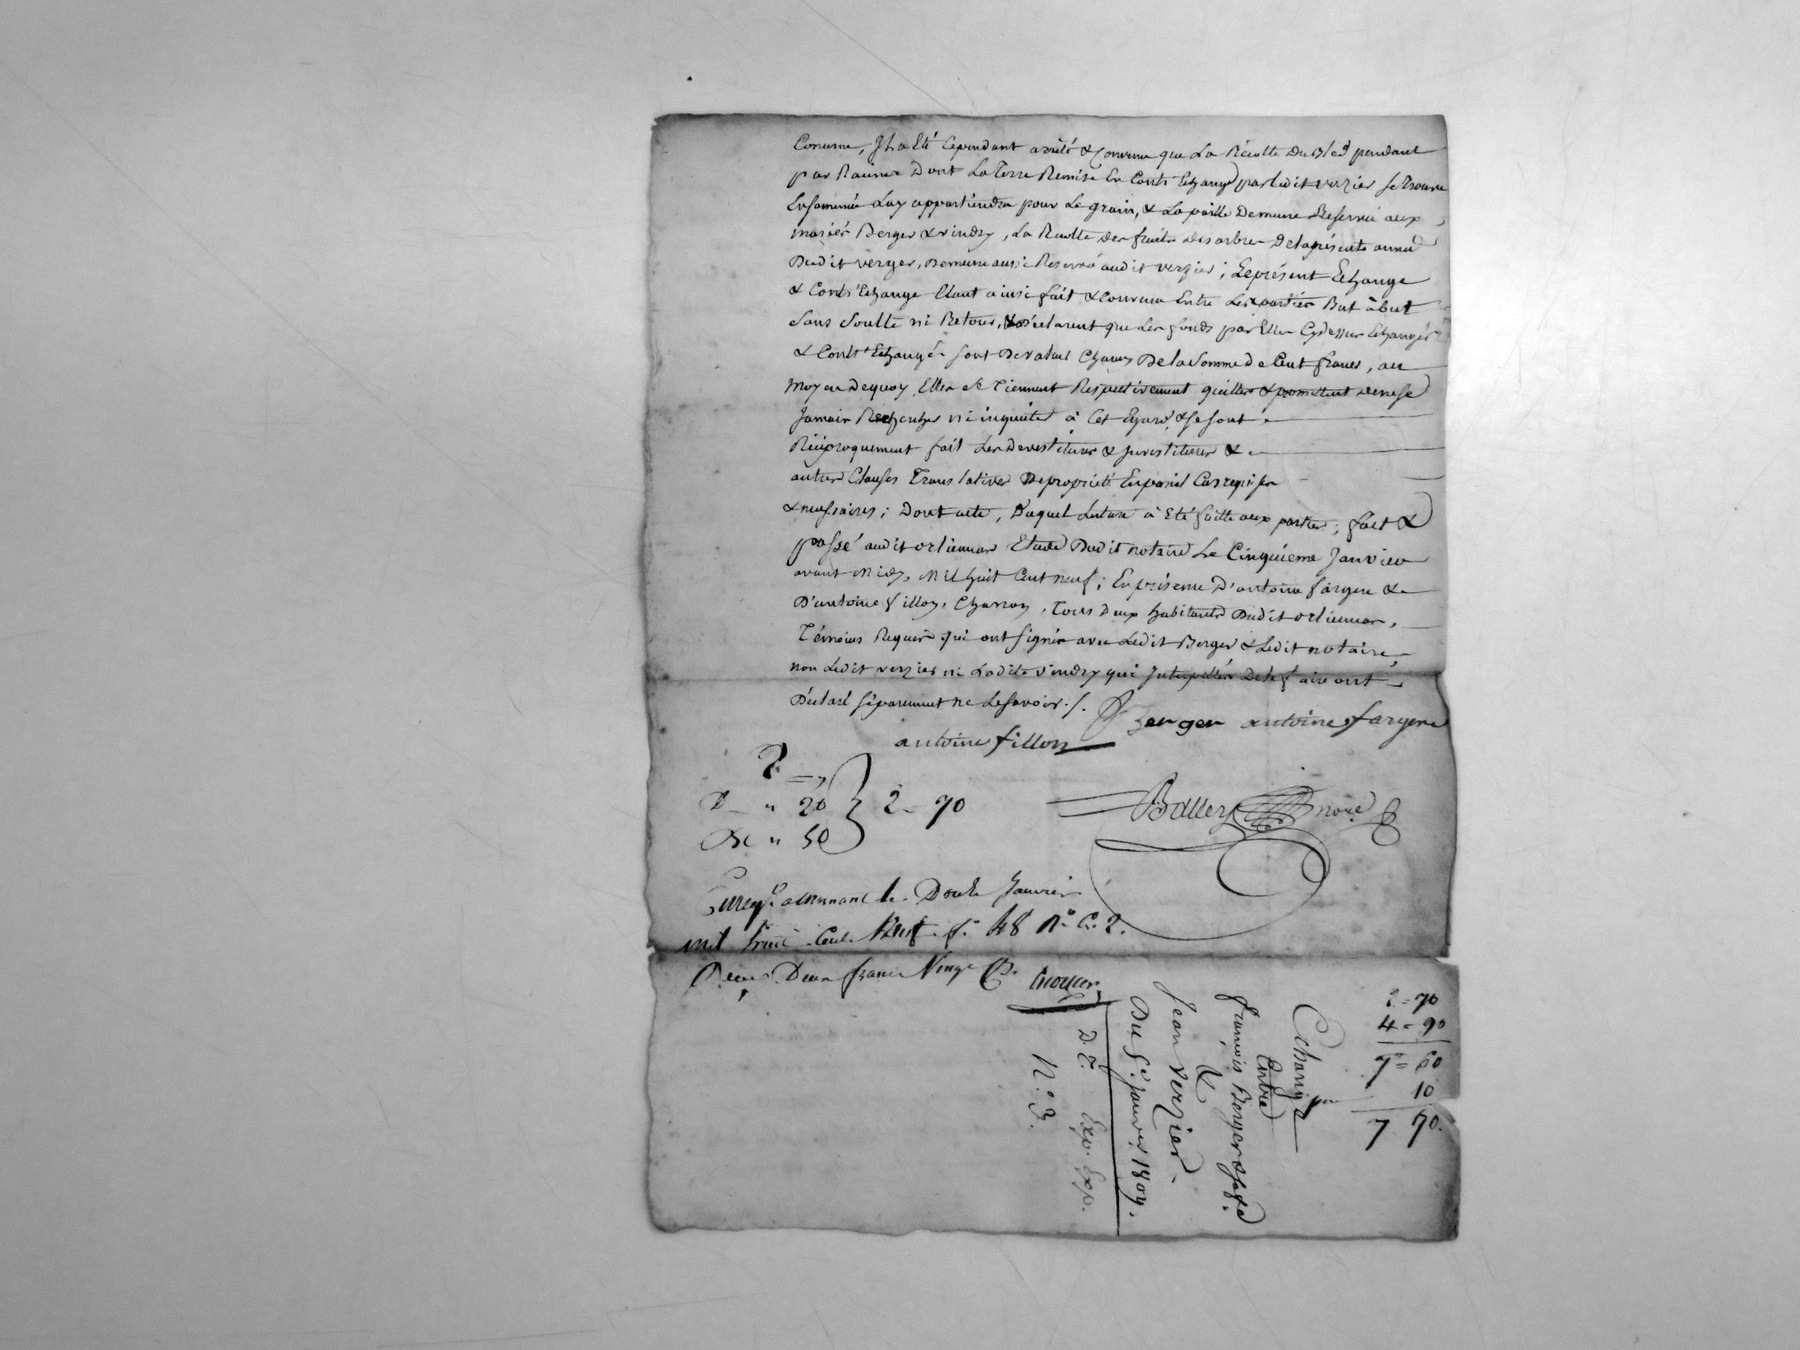 Concerne, Il a Eté Cependant arrêté & Convenu que La Récolte Du Bled pendant
par Racines Dont La Terre Remise En Contr'Echange par Ledit verzier Se Trouve
Ensemencée Luy appartiendra pour Le grain, & La paille Demeure Reservée aux
mariés Berger & vindry, La Recolte Des fruits des arbres De la présente année
Dudit verger, Demeure aussi Reservé audit verzier; Le présent Echange
& Contr'Echange Etant ainsi fait & Convenu Entre Les parties But à but
Sans Soulte ni Retour, & déclarent que Les fonds par Elles Cydessus Echangés
& Contr'Echangés Sont De valeur Chacun De la Somme de Cent francs, au
moyen Dequoy Elles Se Tiennent Respectivement quittes & promettent de ne se
Jamais Rechercher ni inquiéter à Cet Egard, & se sont
Réciproquement fait Les Devestitures & Investitures &
autres Clauses Translatives De propriété En pareil Cas requises
& necessaires; Dont acte, Duquel Lecture à Eté faitte aux parties; fait &
passé audit orlienas Etude Dudit notaire Le Cinquieme Janvier
avant Midy, Mil huit Cent neuf; En présence D'antoine fargere &
D'antoine fillon, Charron, Tous Deux habitants Dudit orlienas,
Témoins Requis qui ont Signés avec Ledit Berger & Ledit notaire,
non Ledit verzier ni Ladite vindry qui Interpellés De le faire ont
Déclaré Séparement ne Le Savoir ./.
Berger antoine fargere
antoine fillon
20 2 = 70
50
Ballery nore
Enregé a Mornant le Douze Janvier
mil huit Cent Neuf fo 48 Ro C. 2.
Reçu Deux francs Vingt C.
2 = 70
4 = 90
7 = 60
10
7 70.
Echange
Entre
françois Berger & sa fe
&
Jean verzier
Du 5e Janvier 1809.
D. E. Exp. Exp.
N.o 3.